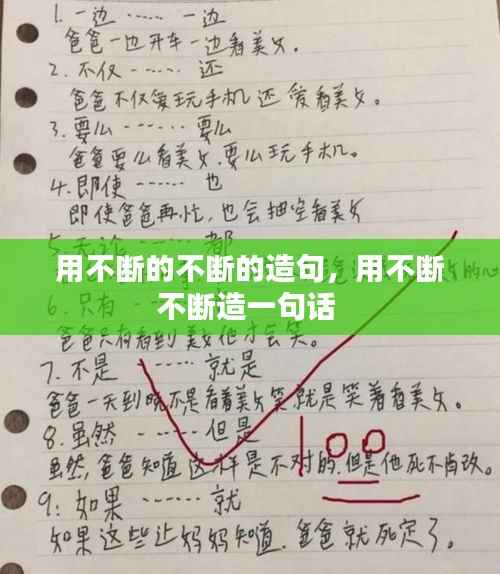 1. 一边 …… 一边
爸爸一边开车一边看美女。
2. 不仅 …… 还
爸爸不仅爱玩手机还爱看美女。
3. 要么 …… 要么
爸爸要么看美女,要么玩手机。
4. 即使 …… 也
即使爸爸再忙,也会抽空看美女
5. 无论 …… 都
用不断的不断的造句，用不断
不断造一句话
6. 只有
爸爸只有看到美女他才会笑。
7. 不是 …… 就是
爸爸一天到晚不是看着美女笑就是笑着看美女。
8. 虽然 …… 但是
虽然,爸爸知道这样是不对的,但是他死不肯改。
100
9: 如果 …… 就
如果这些让妈妈知道,爸爸就死定了。